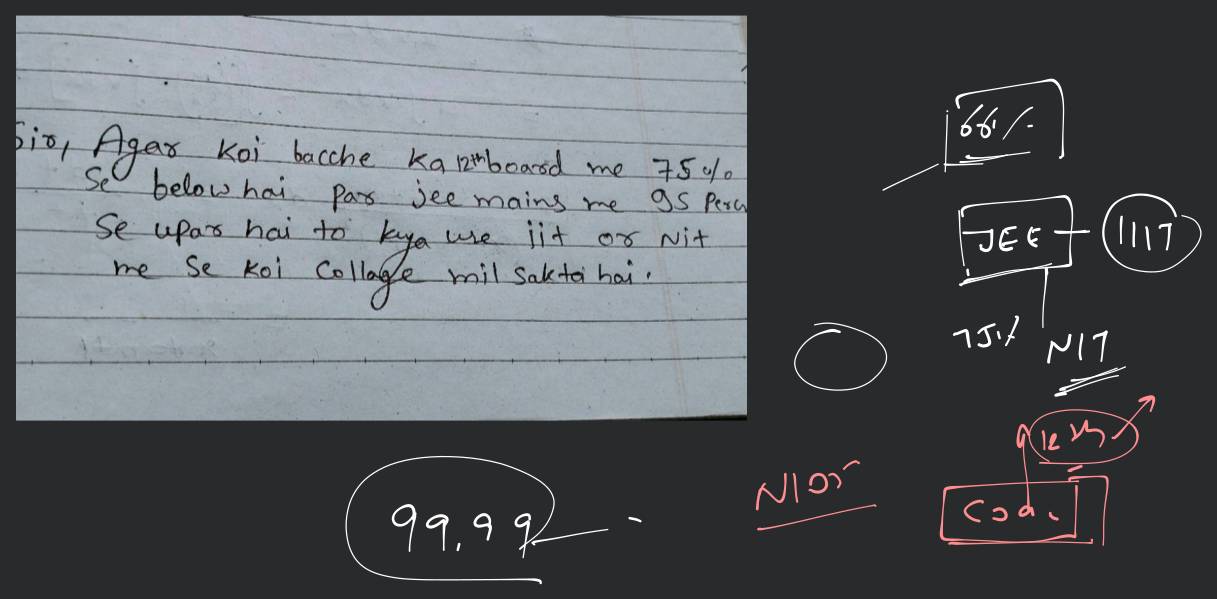 Sir, Agar koi bacche ka 12th board me 75%
Se below hai par jee mains me 95 Perc
Se upar hai to kya use iit or Nit
me se koi collage mil sakta hai.
66%
JEE
IIIT
75%
NIT
99.99
NIOS